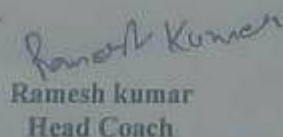 Ramesh Kumar
Ramesh kumar
Head Coach